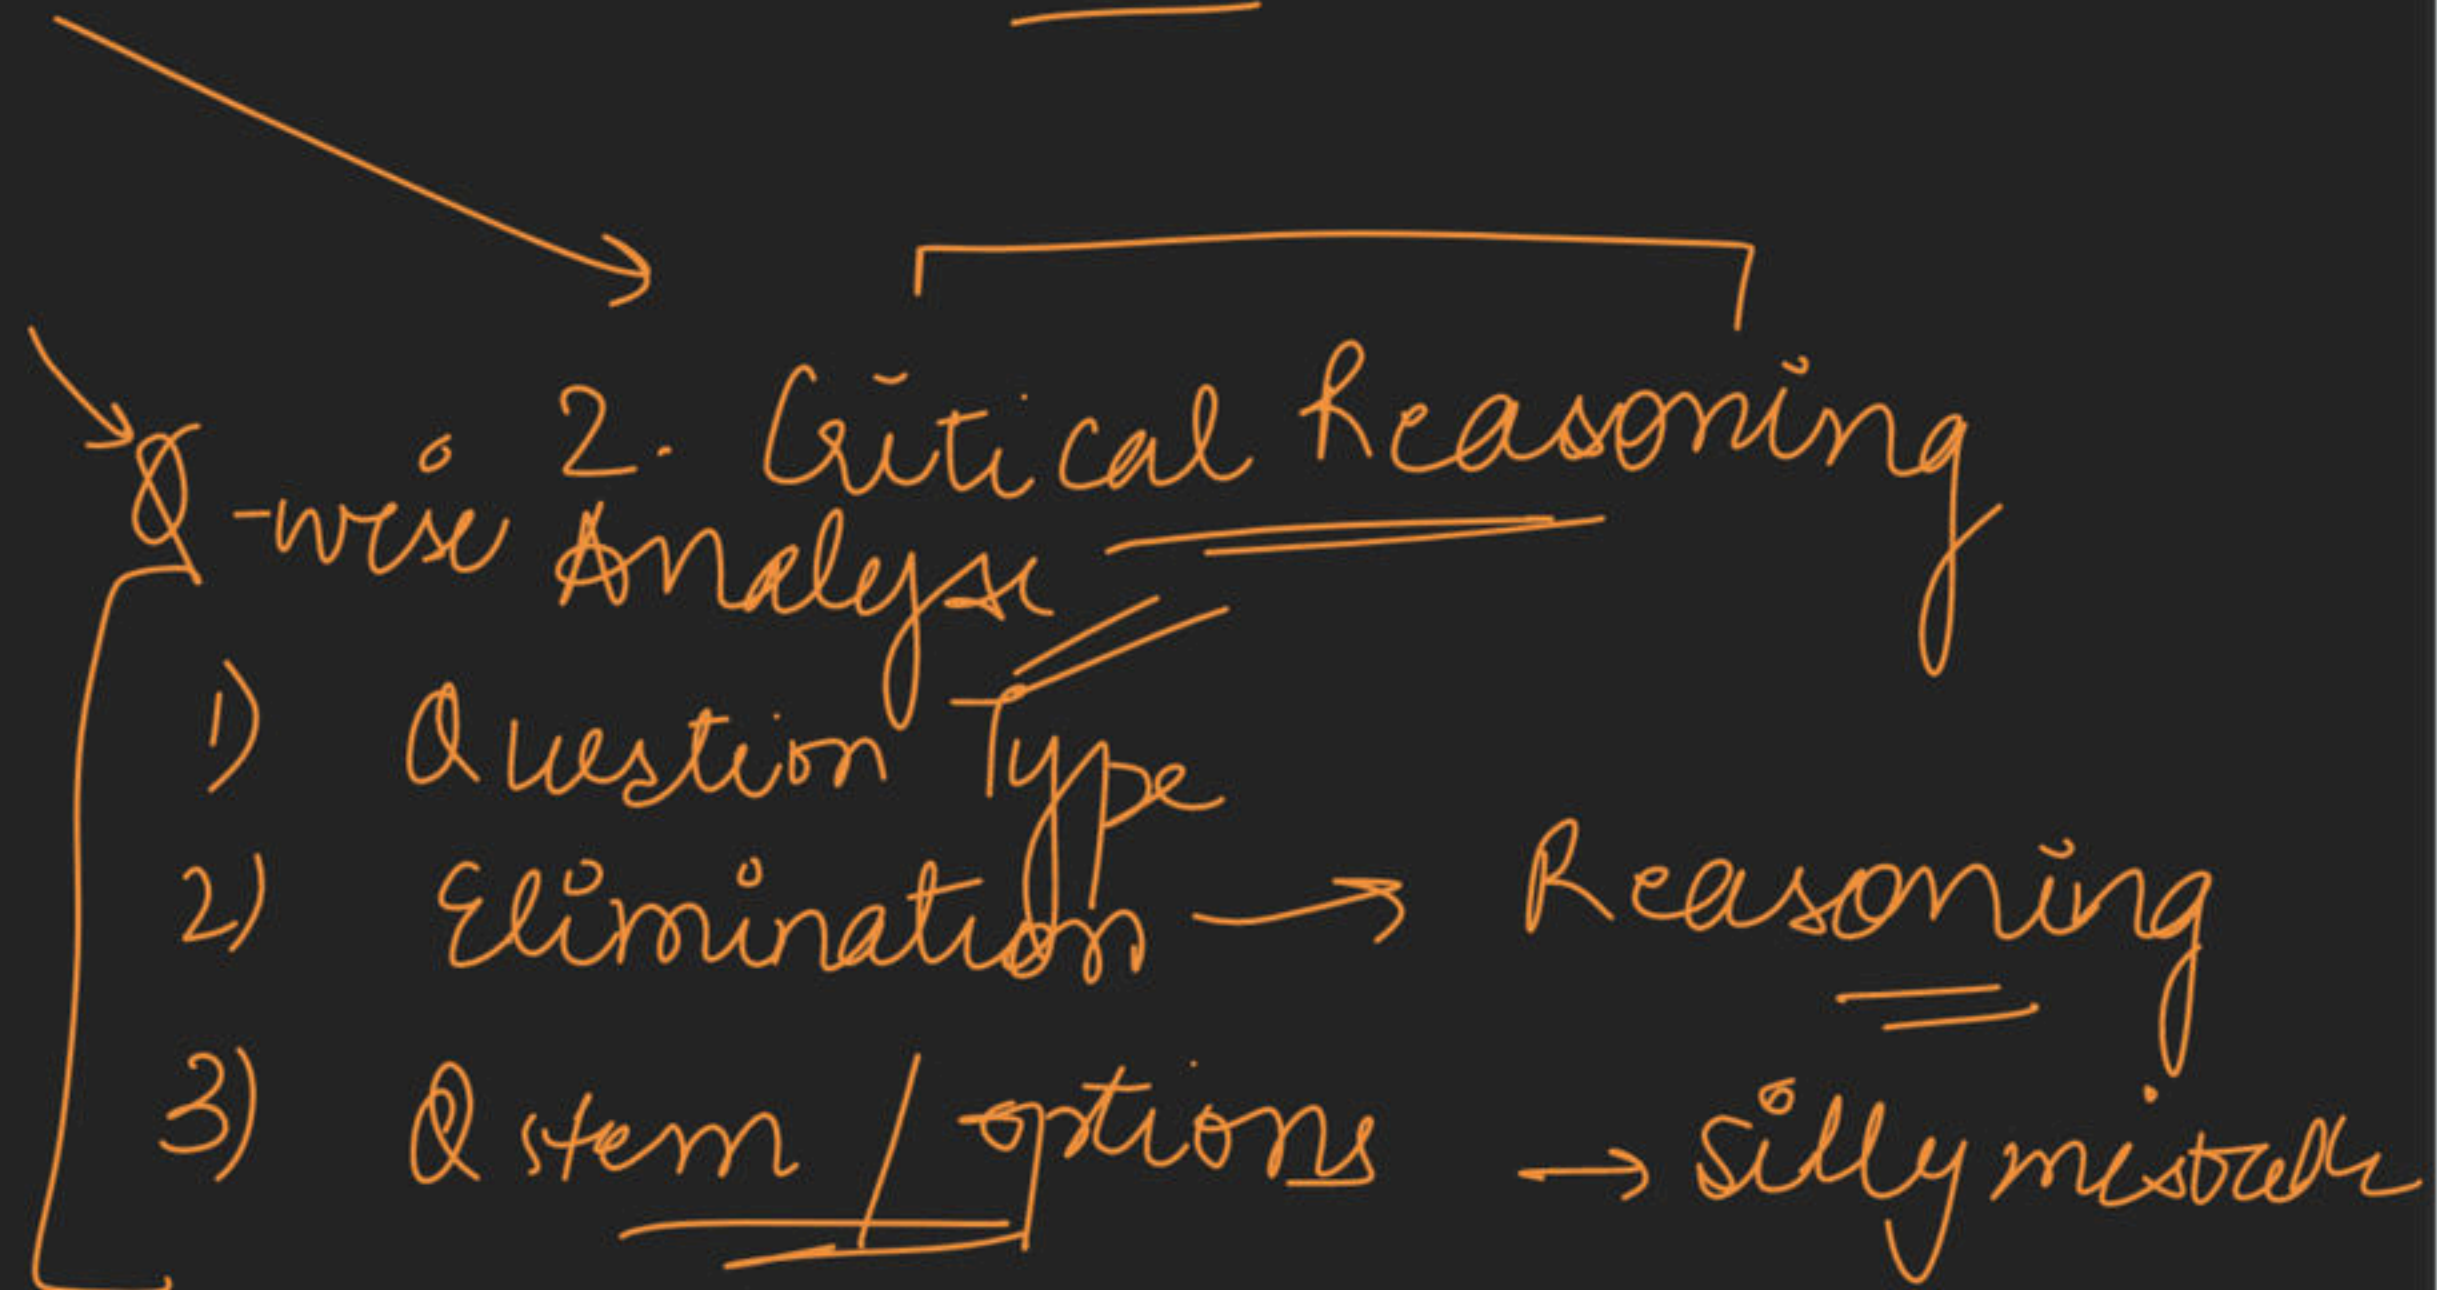 2. Critical Reasoning
Q-wise Analyse
1) Question Type
2) Elimination → Reasoning
3) Q stem / options → Silly mistake